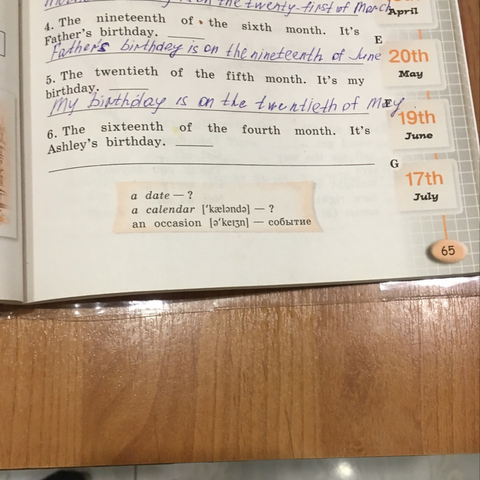 on the twenty-first of March
4. The nineteenth of the sixth month. It's
Father's birthday.
Father's birthday is on the nineteenth of June
5. The twentieth of the fifth month. It's my
birthday.
My birthday is on the twentieth of May
6. The sixteenth of the fourth month. It's
Ashley's birthday.
a date — ?
a calendar ['kæləndə] — ?
an occasion [ə'keɪʒn] — событие
April
E
20th
May
19th
June
G
17th
July
65